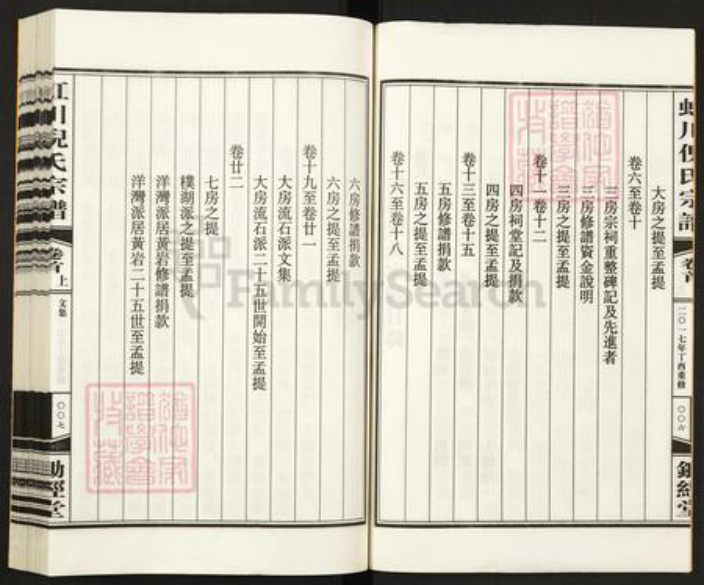 大房之提至孟提
卷六至卷十
三房宗祠重整碑記及先進者
三房修譜資金說明
三房之提至孟提
卷十一卷十二
四房祠堂記及捐款
四房之提至孟提
卷十三至卷十五
五房修譜捐款
五房之提至孟提
卷十六至卷十八
六房修譜捐款
六房之提至孟提
卷十九至卷廿一
大房流石派文集
大房流石派二十五世開始至孟提
卷廿二
七房之提
樸湖派之提至孟提
洋灣派居黃岩修譜捐款
洋灣派居黃岩二十五世至孟提
倪氏宗譜
卷首
上
文集
〇〇七
經堂
川倪氏宗譜
卷首
二〇一七年丁酉重修
〇〇六
經堂
FamilySearch